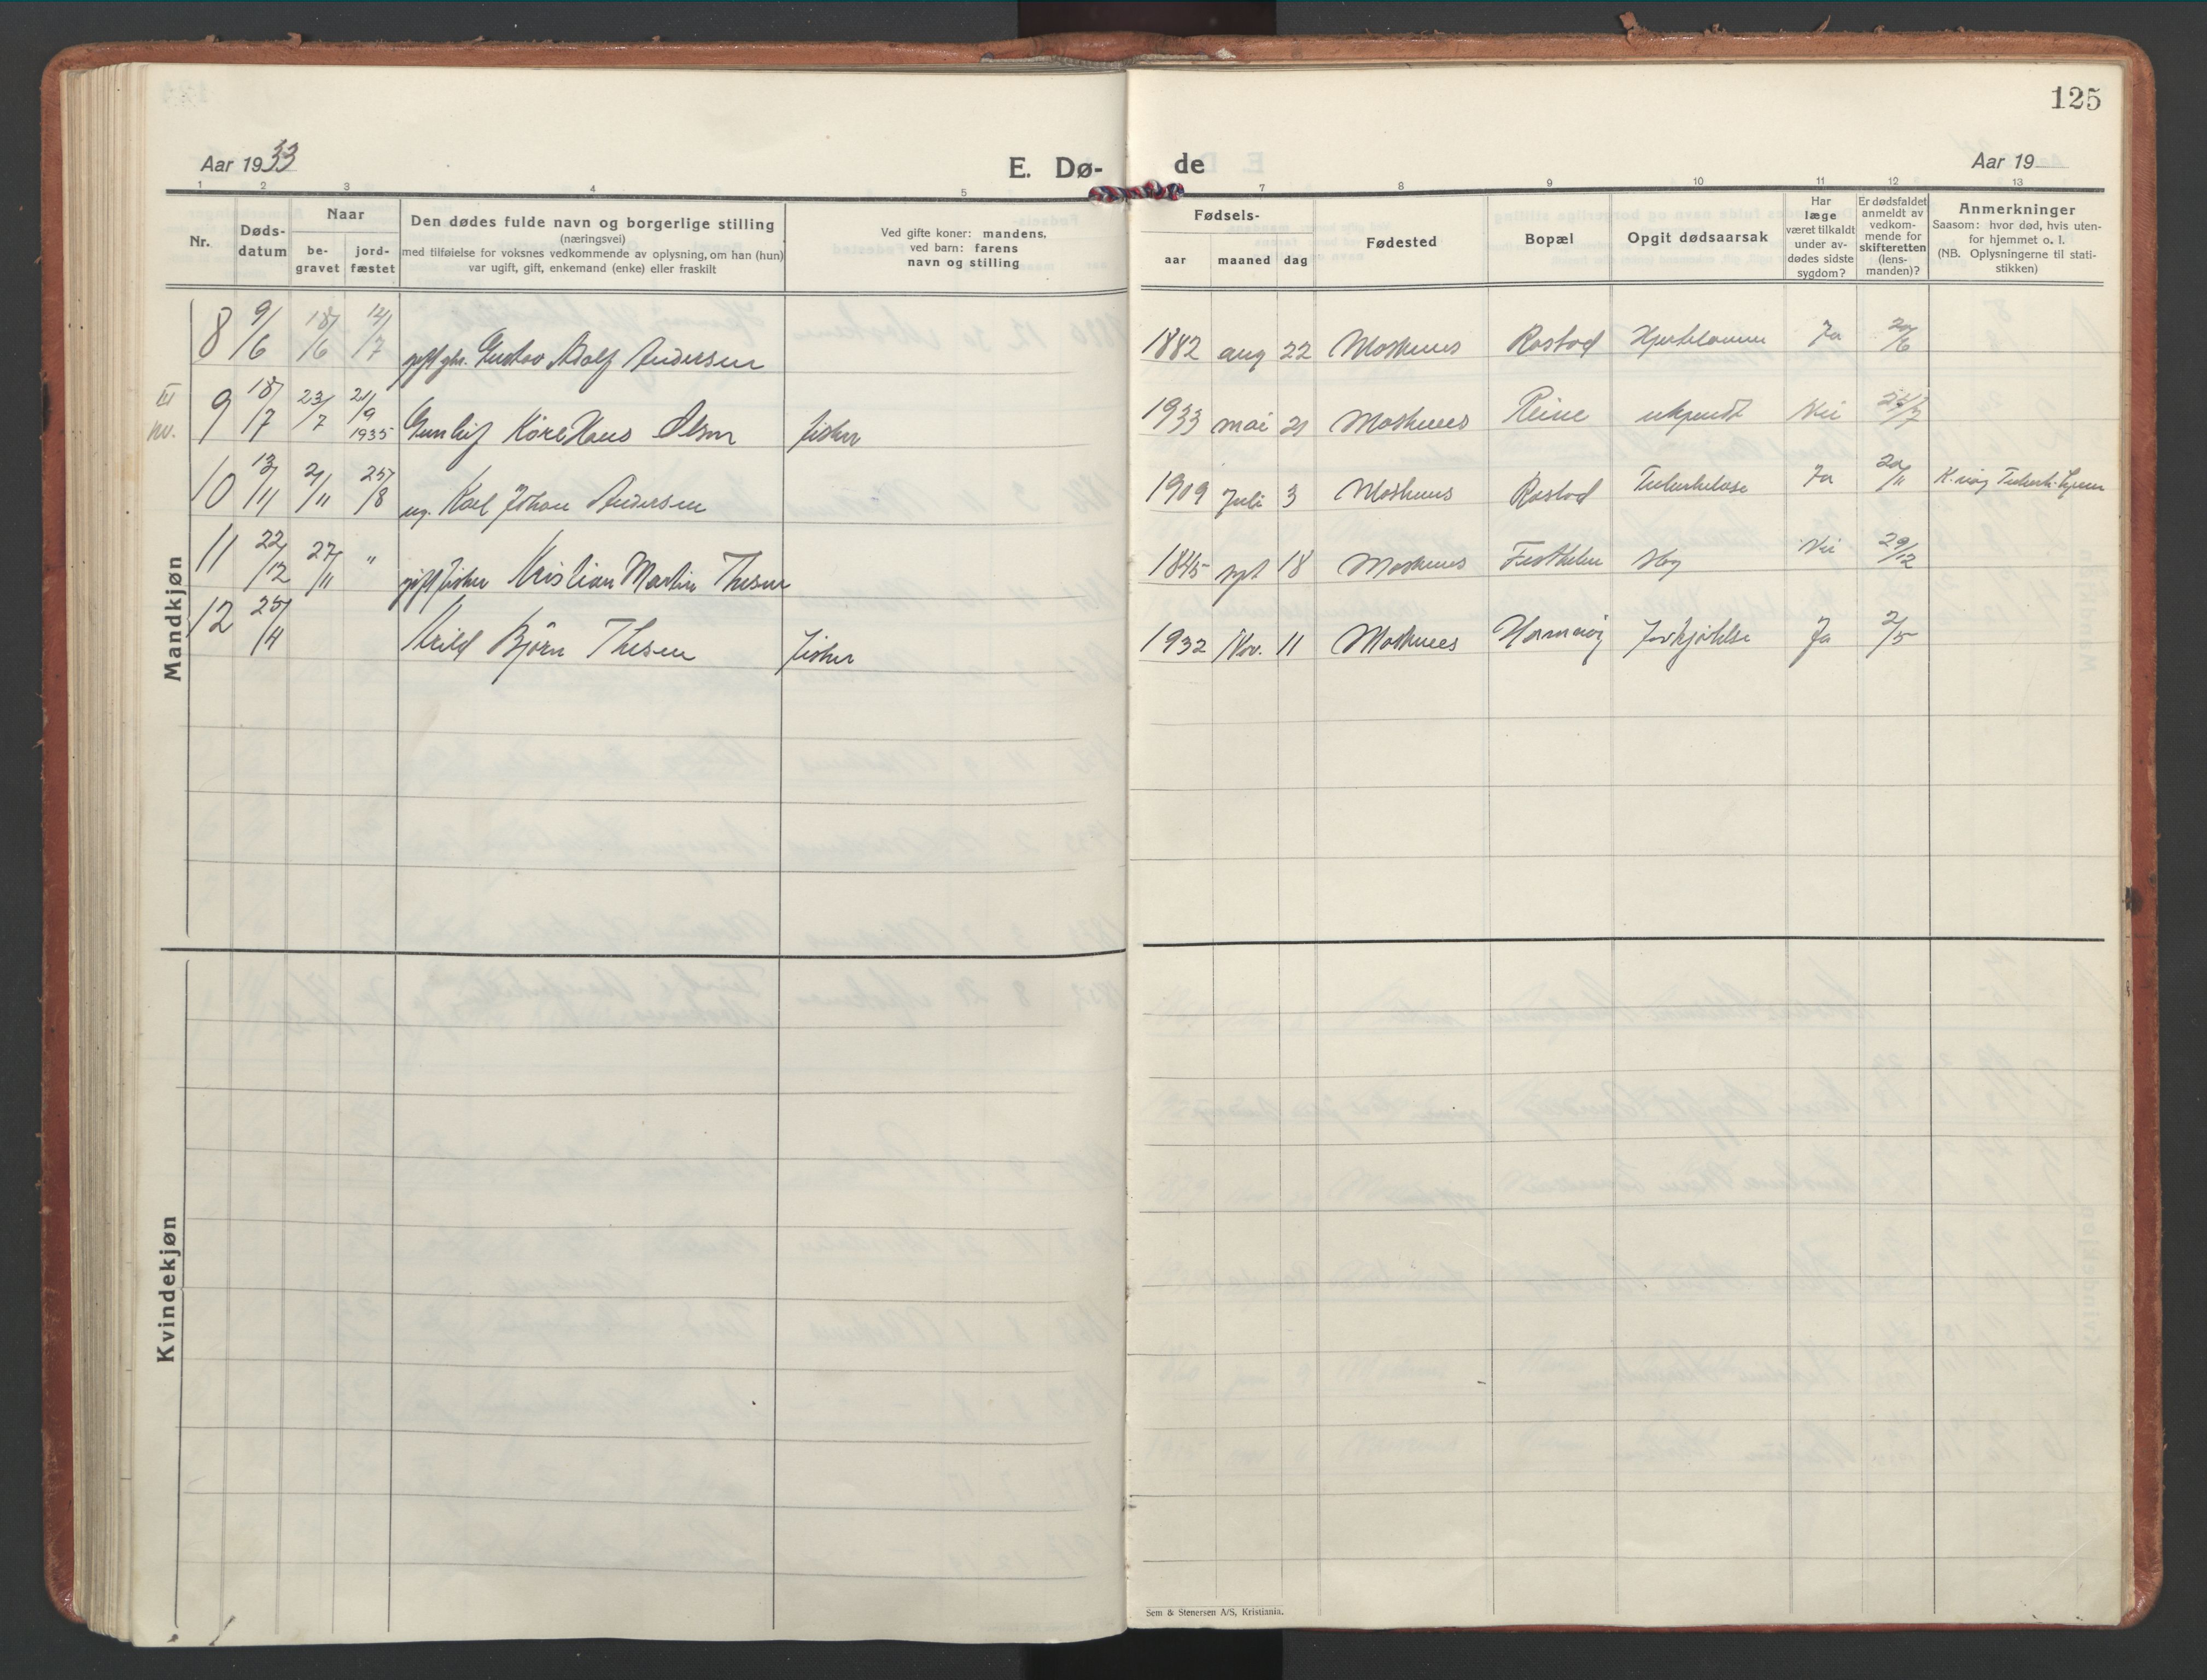 125
Aar 1933
E. Dø-
de
Aar 19
1 2 3 4 5 7 8 9 10 11 12 13
Nr.
Døds-
datum
Naar
be-
gravet
jord-
fæstet
Den dødes fulde navn og borgerlige stilling
(næringsvei)
med tilføielse for voksnes vedkommende av oplysning, om han (hun)
var ugift, gift, enkemand (enke) eller fraskilt
Ved gifte koner: mandens,
ved barn: farens
navn og stilling
Fødsels-
aar maaned dag
Fødested
Bopæl
Opgit dødsaarsak
Har
læge
været tilkaldt
under av-
dødes sidste
sygdom?
Er dødsfaldet
anmeldt av
vedkom-
mende for
skifteretten
(lens-
manden)?
Anmerkninger
Saasom: hvor død, hvis uten-
for hjemmet o. l.
(NB. Oplysningerne til stati-
stikken)
Mandkjøn
8 9/6 18/6 14/7 Gustav Adolf Andersen 1882 aug 22 Moskenes Rostad Ja 20/6
9 18/7 23/7 21/9 1935 Gunleif Kåre Hans Olsen fisker 1933 mai 21 Moskenes Reine ukjendt Nei
10 13/11 21/11 25/8 ug. Karl Johan Andersen 1909 Juli 3 Moskenes Rostad Tuberkulose Ja 20/11
11 22/12 27/11 " gift fisker Kristian Martin Thesen 1845 sept 18 Moskenes Nei 29/12
12 25/4 Arild Bjørn Thesen fisker 1932 Nov. 11 Moskenes Ja 2/5
Kvindekjøn
Sem & Stenersen A/S, Kristiania.